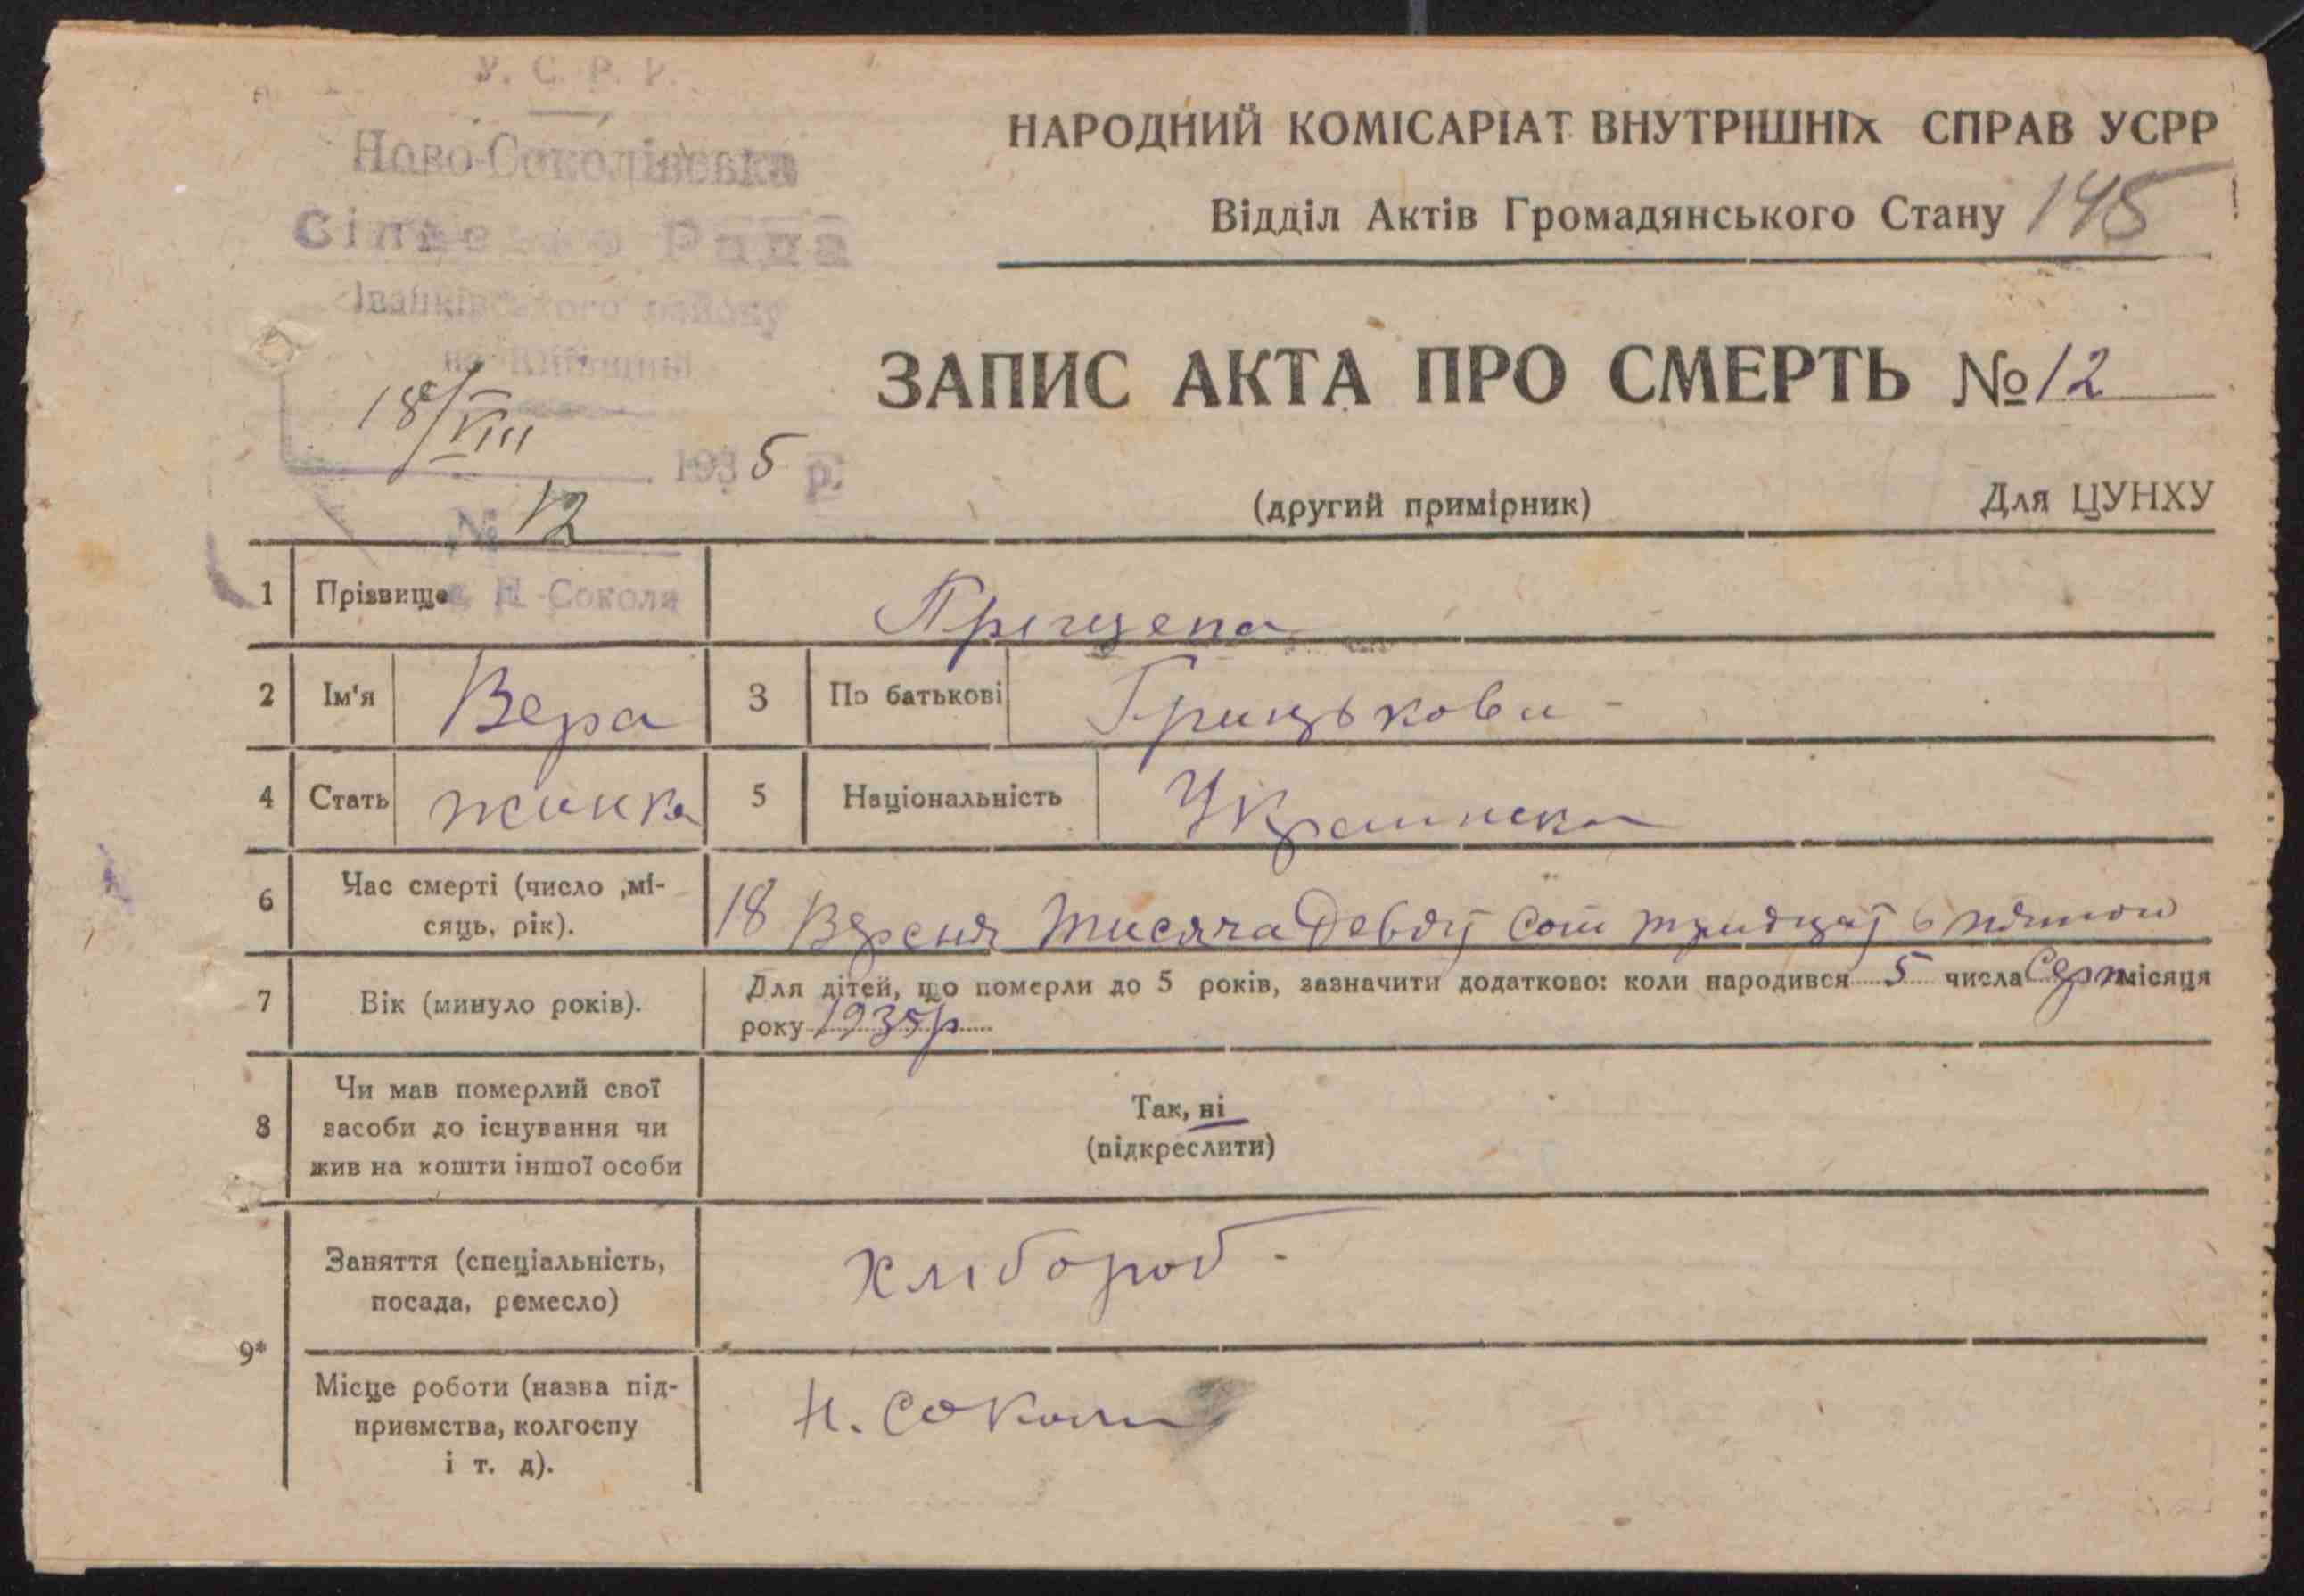 У. С. Р. Р.
Ново-Соколівська
Сільська Рада
Іванківського району
на Київщині
18/VIII
1935 р.
№ 12
с. Н-Соколи
НАРОДНИЙ КОМІСАРІАТ ВНУТРІШНІХ СПРАВ УСРР
Відділ Актів Громадянського Стану 145
ЗАПИС АКТА ПРО СМЕРТЬ № 12
(другий примірник) Для ЦУНХУ
1 Прізвище Прищепа
2 Ім'я Вера 3 По батькові Грицькови
4 Стать жинка 5 Національність Украинска
6 Час смерті (число ,мі-
сяць, рік).
18 Вресня тисяча Девят сот тридцят пятои
7 Вік (минуло років).
Для дітей, що померли до 5 років, зазначити додатково: коли народився 5 числа Серп місяця
року 1935р
8 Чи мав померлий свої
засоби до існування чи
жив на кошти іншої особи
Так, ні
(підкреслити)
9*
Заняття (спеціальність,
посада, ремесло)
хлібороб
Місце роботи (назва під-
приємства, колгоспу
і т. д).
Н. Соколи